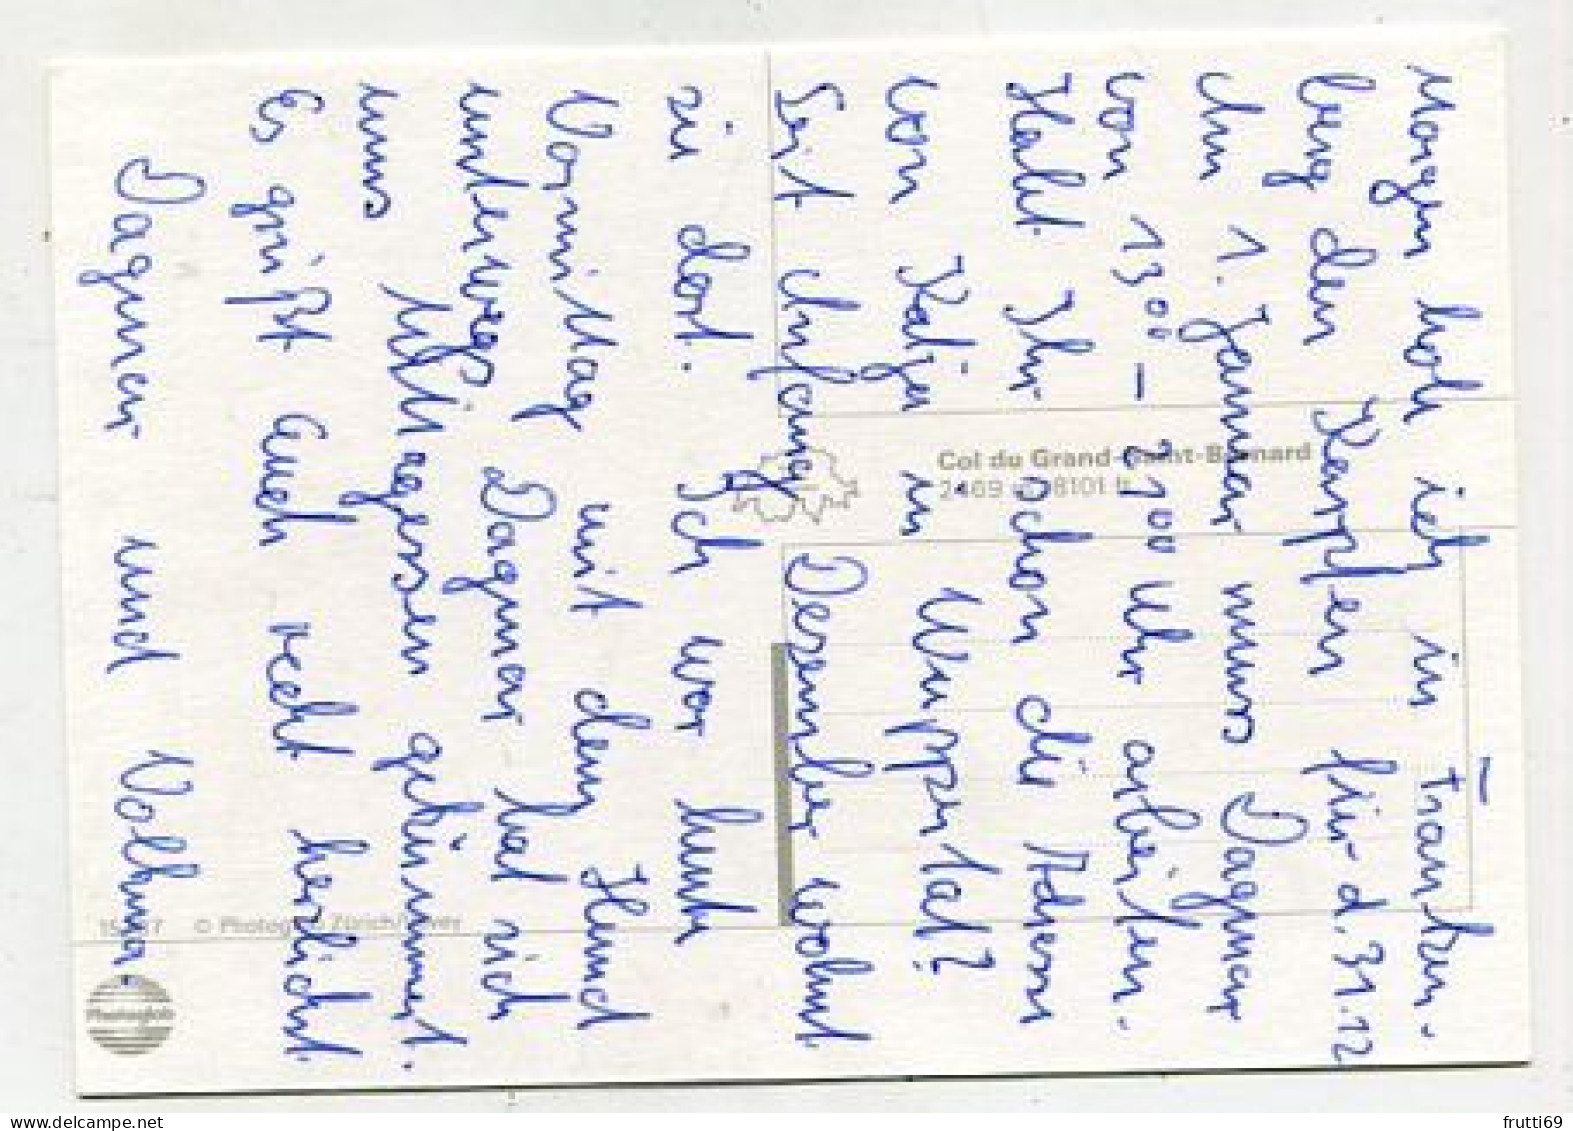 Morgen hole ich in Franken-
berg den Karpfen für d. 31.12
Am 1. Januar muss Dagmar
von 13⁰⁰ – 21⁰⁰ Uhr arbeiten.
Habt Ihr schon die Adresse
von Katja in Wuppertal?
Seit Anfang Dezember wohnt
sie dort. Ich war heute
Vormittag mit dem Hund
unterwegs Dagmar hat sich
ums Mittagessen gekümmert.
Es grüßt Euch recht herzlichst
Dagmar und Volkmar.
Col du Grand-Saint-Bernard
2469 m 8101 ft
© Photoglob Zürich/Vevey
Photoglob
frutti69